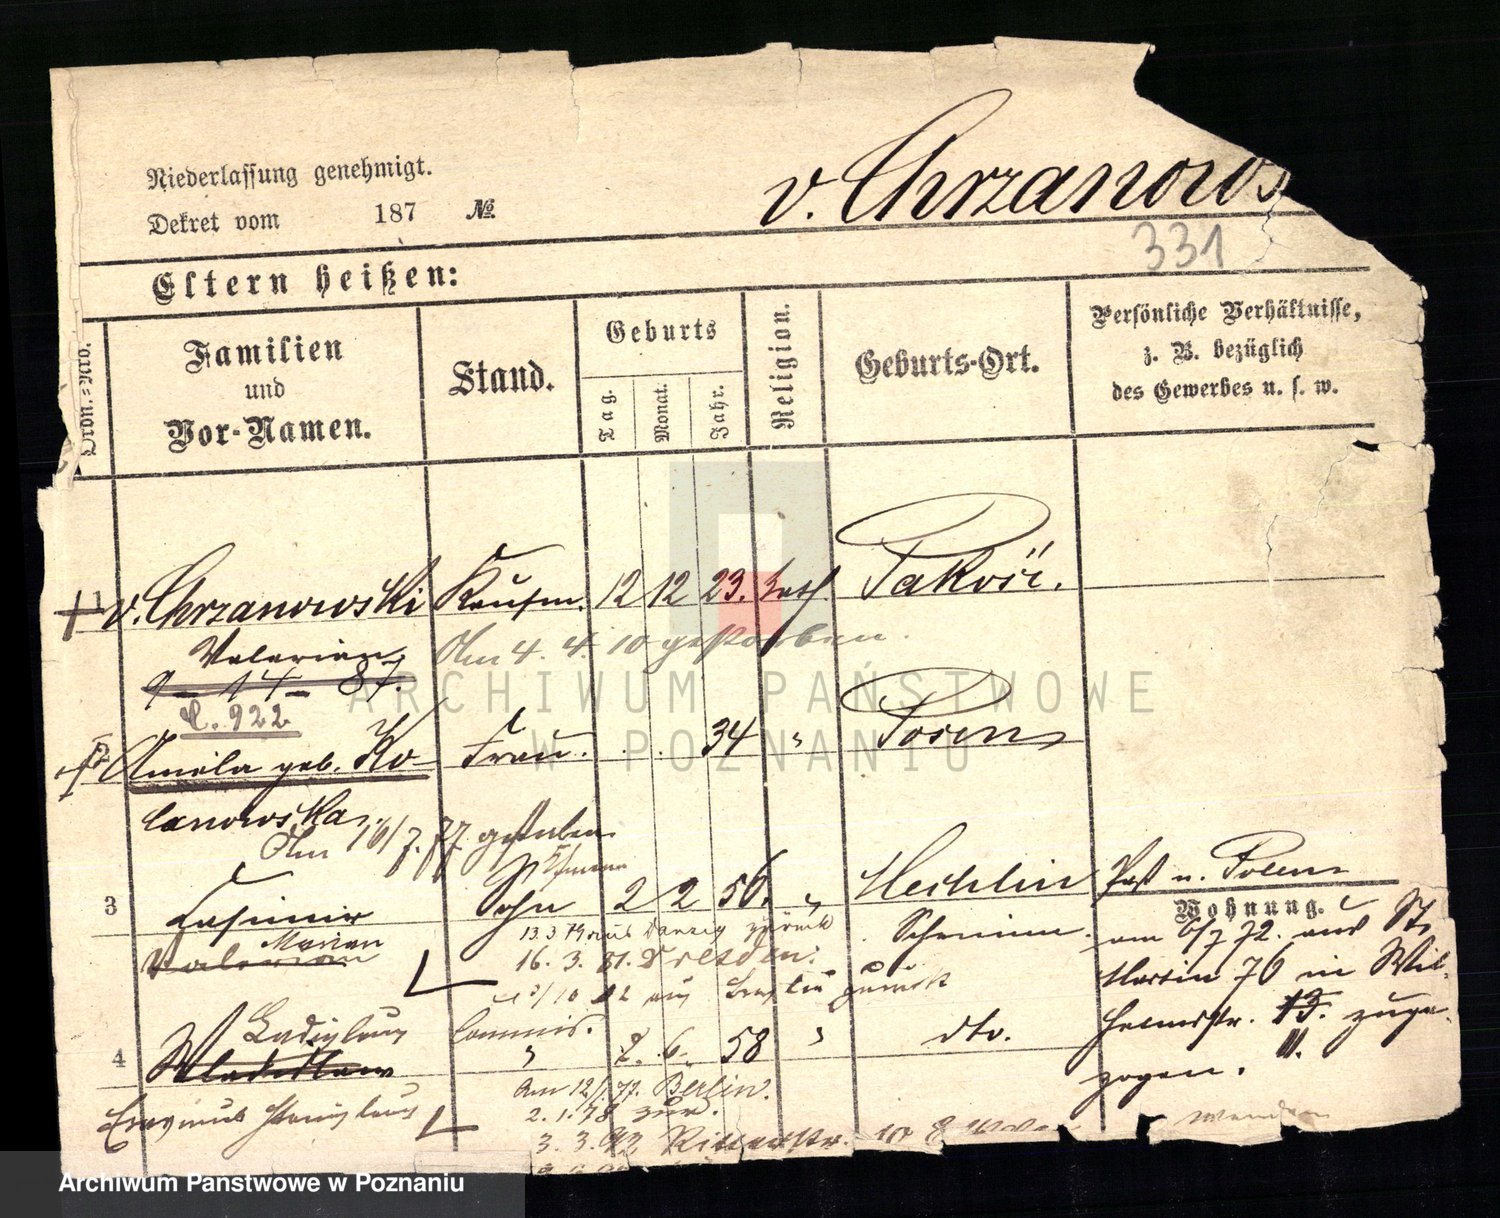 Niederlassung genehmigt.
Dekret vom 187 №
v. Chrzanows
331
Eltern heißen:
Ordn.-Nro.
Familien
und
Vor-Namen.
Stand.
Geburts
Tag.
Monat.
Jahr.
Religion.
Geburts-Ort.
Persönliche Verhältnisse,
z. B. bezüglich
des Gewerbes u. s. w.
1 v. Chrzanowski Kaufm. 12 12 23. kath. Pakość.
Valerian
Am 4. 4. 10 gestorben.
9 - 14 - 87.
C. 922
2 Amela geb. Ko- Frau. . . 34 " Posen
lanowska.
Am 16/7. 77 gestorben
3 Casimir Sohn 2 2 56. " Hechlin Post u. Posen
Wohnung.
Marian
Valerian
13.3.79 aus Danzig zurück
Schrimm.
am 6/7 72. aus St.
16. 3. 81. Dresden.
Martin 76 in Wil-
10 82 aus Breslau zurück
helmstr. 13. zuge-
11.
zogen.
Ladislaus Commis.
4 Wladislaw " 2. 6. 58 " dto.
Am 12/1. 77. Berlin.
Erasmus Stanislaus
2. 1. 78 zur.
3. 3. 93 Ritterstr. 10
ARCHIWUM PAŃSTWOWE
W POZNANIU
Archiwum Państwowe w Poznaniu